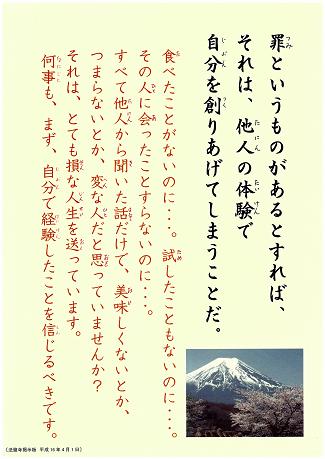 罪というものがあるとすれば、
それは、他人の体験で
自分を創りあげてしまうことだ。
食べたことがないのに・・・。試したこともないのに・・・。
その人に会ったことすらないのに・・・。
すべて他人から聞いた話だけで、美味しくないとか、
つまらないとか、変な人だと思っていませんか？
それは、とても損な人生を送っています。
何事も、まず、自分で経験したことを信じるべきです。